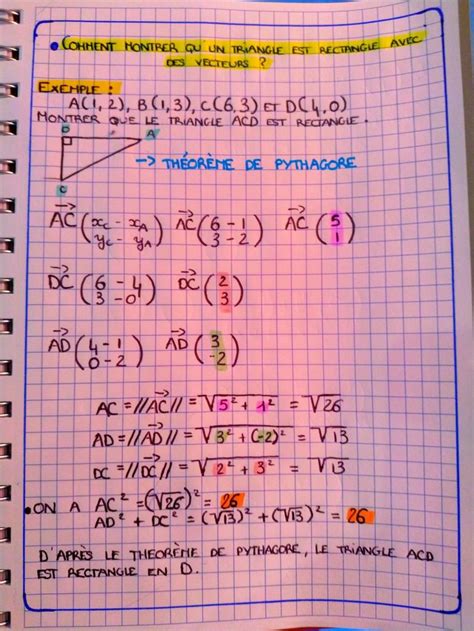 • COMMENT MONTRER QU'UN TRIANGLE EST RECTANGLE AVEC
DES VECTEURS ?
EXEMPLE :
A(1,2), B(1,3), C(6,3) ET D(4,0)
MONTRER QUE LE TRIANGLE ACD EST RECTANGLE.
D A
→ THÉORÈME DE PYTHAGORE
C
AC→ (x_C - x_A / y_C - y_A) AC→ (6 - 1 / 3 - 2) AC→ (5 / 1)
DC→ (6 - 4 / 3 - 0) DC→ (2 / 3)
AD→ (4 - 1 / 0 - 2) AD→ (3 / -2)
AC = //AC→// = √5² + 1² = √26
AD = //AD→// = √3² + (-2)² = √13
DC = //DC→// = √2² + 3² = √13
• ON A AC² = (√26)² = 26
AD² + DC² = (√13)² + (√13)² = 26
D'APRÈS LE THÉORÈME DE PYTHAGORE, LE TRIANGLE ACD
EST RECTANGLE EN D.